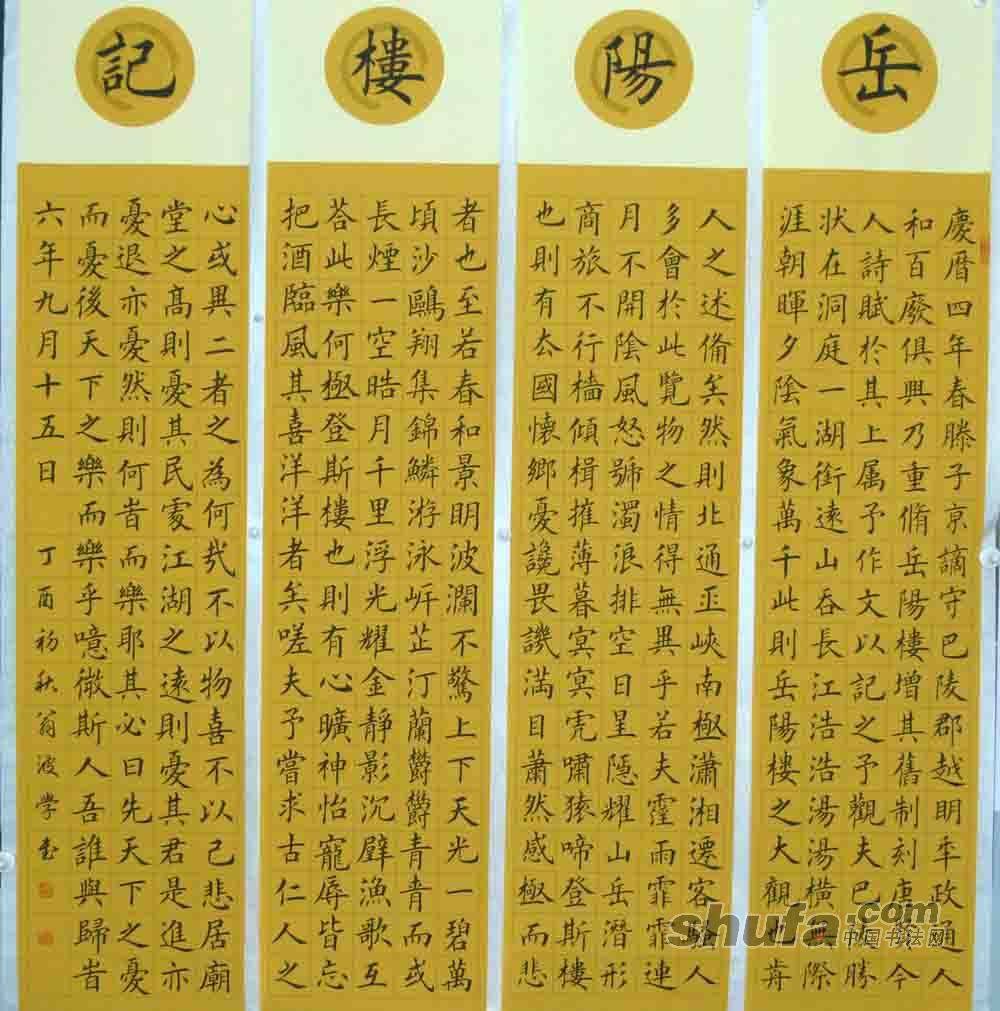 岳陽樓記
慶曆四年春滕子京謫守巴陵郡越明秊政通人
和百廢俱興乃重脩岳陽樓增其舊制刻唐賢今
人詩賦於其上属予作文以記之予觀夫巴陵勝
狀在洞庭一湖銜遠山吞長江浩浩湯湯橫無際
涯朝暉夕陰氣象萬千此則岳陽樓之大觀也歬
人之述俻矣然則北通巫峽南極瀟湘遷客騷人
多會於此覽物之情得無異乎若夫霪雨霏霏連
月不開陰風怒號濁浪排空日星隱耀山岳潛形
商旅不行檣傾楫摧薄暮冥冥虎嘯猿啼登斯樓
也則有去國懷鄉憂讒畏譏滿目蕭然感極而悲
者也至若春和景明波瀾不驚上下天光一碧萬
頃沙鷗翔集錦鱗游泳岸芷汀蘭鬱鬱青青而或
長煙一空皓月千里浮光耀金靜影沉璧漁歌互
荅此樂何極登斯樓也則有心曠神怡寵辱皆忘
把酒臨風其喜洋洋者矣嗟夫予嘗求古仁人之
心或異二者之為何哉不以物喜不以己悲居廟
堂之高則憂其民處江湖之遠則憂其君是進亦
憂退亦憂然則何旹而樂耶其必曰先天下之憂
而憂後天下之樂而樂乎噫微斯人吾誰與歸旹
六年九月十五日 丁酉初秋翁波學書
shufa.com
中国书法网